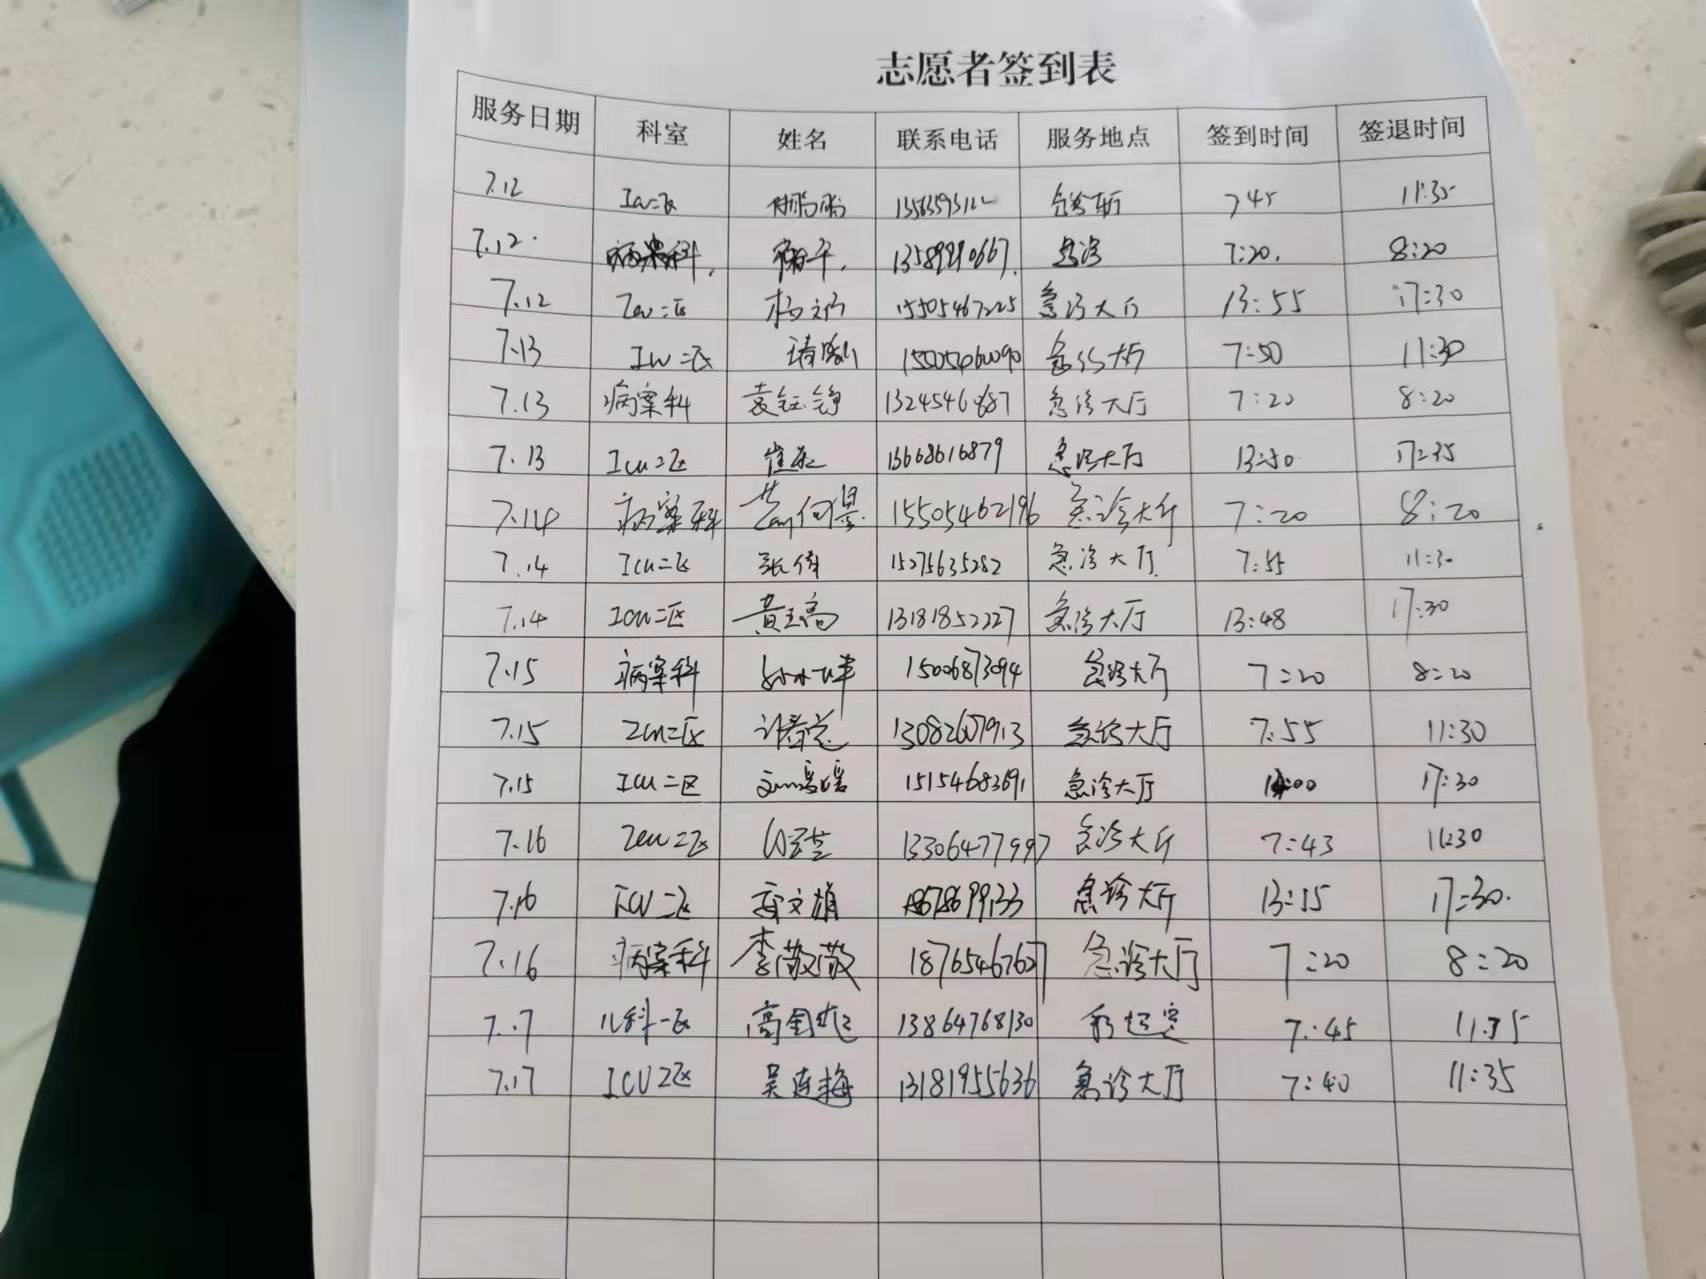 志愿者签到表
服务日期 科室 姓名 联系电话 服务地点 签到时间 签退时间
7.12 二区 7:45 11:35
7.12 病案科 急诊 7:20 8:20
7.12 二区 15505467225 急诊大厅 13:55 17:30
7.13 ICU二区 急诊大厅 7:50 11:30
7.13 病案科 袁钰铮 急诊大厅 7:20 8:20
7.13 ICU二区 13668616879 急诊大厅 13:50 17:35
7.14 病案科 15505462196 急诊大厅 7:20 8:20
7.14 ICU二区 张伟 15275635282 急诊大厅 7:55 11:30
7.14 ICU二区 黄玉高 13181852227 急诊大厅 13:48 17:30
7.15 病案科 15006873094 急诊大厅 7:20 8:20
7.15 ICU二区 急诊大厅 7:55 11:30
7.15 ICU二区 15154683691 急诊大厅 17:30
7.16 ICU二区 13306477997 急诊大厅 7:43 11:30
7.16 ICU二区 急诊大厅 13:55 17:30
7.16 病案科 李敬敬 18765467627 急诊大厅 7:20 8:20
7.17 儿科一区 13864768130 7:45 11:35
7.17 ICU2区 吴连梅 13181955636 急诊大厅 7:40 11:35